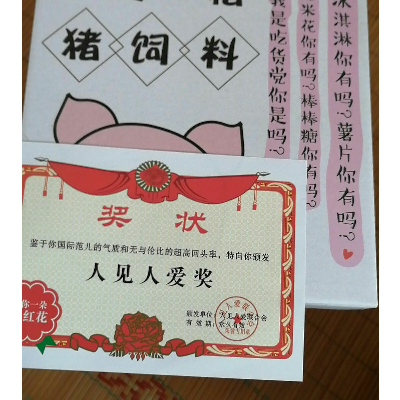 猪饲料
冰淇淋你有吗?薯片你有吗?
米花你有吗?棒棒糖你有吗?
我是吃货党你是吗?
奖状
鉴于你国际范儿的气质和无与伦比的超高回头率,特向你颁发
人见人爱奖
颁发单位:
有效期:永久有效
你一朵
红花